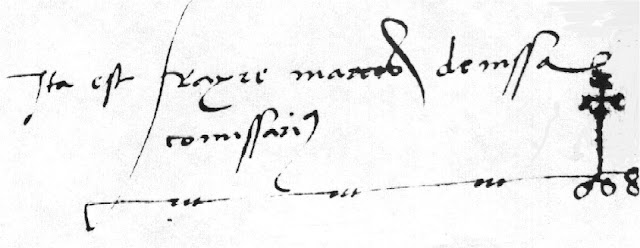 Ita est frayre marcos de nissa
comissariꝰ